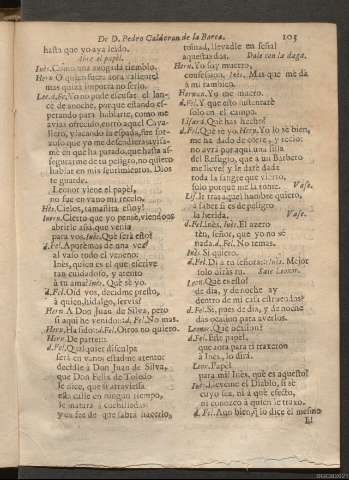 De D. Pedro Calderon de la Barca.
105
hasta que yo aya leido.
Abre el papel.
Inès. Como una azogada tiemblo.
Hern. O quien fuera aora valiente!
mas quiza importa no serlo.
Lee. d. Fe. Yo no pude escusar el lance
de anoche, porque estando esperando
para hablarte, como me
avias ofrecido, entrò aquel Cavallero,
y sacando la espada, fue forzoso
que yo me defendiera, avisame
en què ha parado, que hasta assegurarme
de tu peligro, no quiero
hablar en mis sentimientos. Dios
te guarde.
Leonor viene el papel,
no fue en vano mi recelo.
Hès. Cielos, tamañita estoy!
Inern. Cierto que yo pensè, viendoos
abrirle assi, que venia
para vos. Inès. Què serà esto?
d. Fel. Apuremos de una vez
al vaso todo el veneno:
Inès, quien es el que escrive
tan cuidadoso, y atento
à tu ama? Inès. Què sè yo.
d. Fel. Oid vos, decidme presto,
à quien, hidalgo, servis?
Hern. A Don Juan de Silva, pero
si aqui he venido: d. Fel. No mas.
Hern. Ha sido: d. Fel. Otros no quiero.
Hern. De parte:
d. Fel. Qualquier disculpa
serà en vano; estadme atento:
decidle à Don Juan de Silva,
que Don Felix de Toledo
le dice, que si atraviessa
esta calle en ningun tiempo,
le matarà à cuchilladas:
y en fee de que sabrà hacerlo,
tomad, llevadle en señal
aquestas dos. Dale con la daga.
Hern. Yo soy muerto,
confession, Inès. Mas que me dà
à mi tambien.
Hernan. Yo me muero.
d. Fel. Y que esto sustentarè
solo en el campo.
Lisard. Què has hecho?
d. Fel. Què sè yo. Hern. Yo lo sè bien,
me ha dado de corte, y recio:
no avrà por aqui una silla
del Refugio, que à un Barbero
me lleve? y le darè dada
toda la sangre que vierto,
solo porque me la tome. Vase.
Lis. Ir tras aquel hombre quiero,
à saber si es de peligro
la herida. Vase.
d. Fel. Inès. Inès. El azero
tèn, señor, que yo no sè
nada. d. Fel. No temas.
Inès. Si quiero.
d. Fel. Dà à tu señora: Inès. Mejor
solo diràs tu. Sale Leonor.
Leon. Què es esto?
de dia, y de noche ay
dentro de mi casa estruendos?
d. Fel. Si, pues de dia, y de noche
dàs ocasion para averlos.
Leonor. Què ocasion?
d. Fel. Este papel,
que aora para ti traxeron
à Inès, lo dirà.
Leon. Papel
para mi? Inès, què es aquesto?
Inès. Lleveme el Diablo, si sè
cuyo sea, ni à què efecto,
ni conozco à quien le traxo.
d. Fel. Aun bien, lo dice èl mesmo